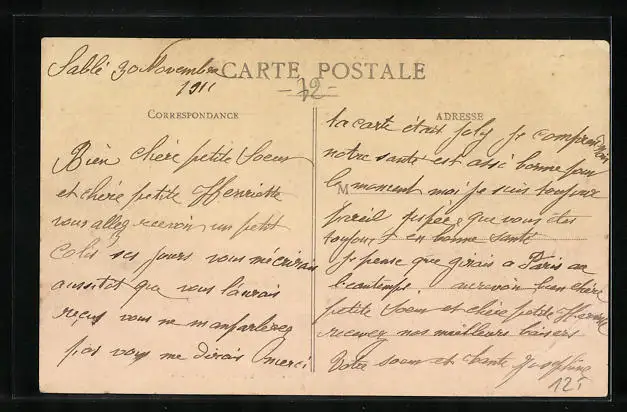 Sablé 30 Novembre
1911
CARTE POSTALE
-72-
CORRESPONDANCE
Bien chère petite Soeur
et chère petite Henriette
vous allez recevoir un petit
Colis ses jours vous mécrirais
aussitot que vous laurais
reçus vous ne m'anparlerez
pas vous me dirais merci
ADRESSE
ta carte était joly je comprend
notre santé est assi bonne pour
le moment moi je suis toujour
M
pareil que vous êtes
toujour en bonne santé
Je pense que girais a Paris au
aurevoir bien chère
petite Soeur et chère petite Henriette
recevez nos meilleurs baisers
Votre soeur et tante Joséphine
12F